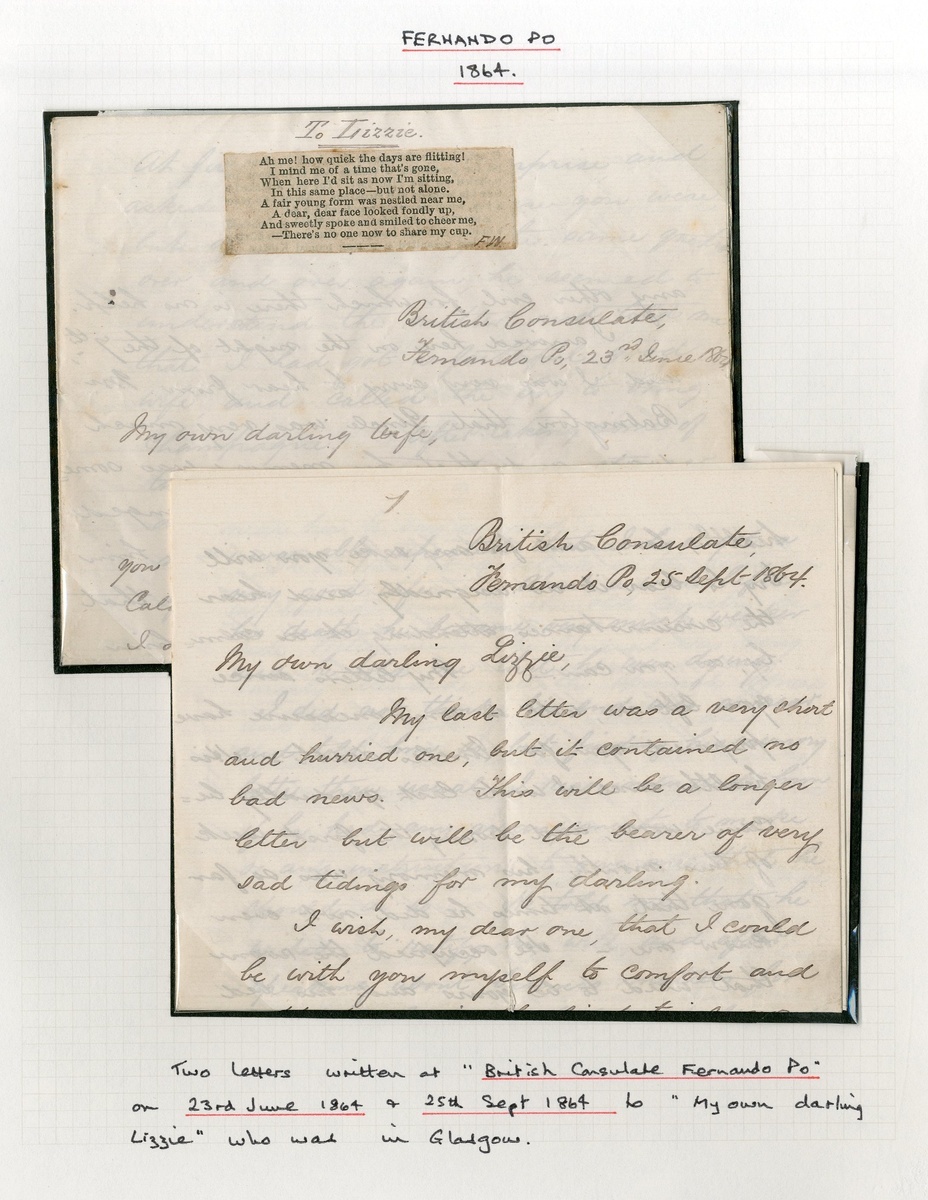 FERNANDO PO
1864.
To Lizzie.
Ah me! how quick the days are flitting!
I mind me of a time that's gone,
When here I'd sit as now I'm sitting,
In this same place—but not alone.
A fair young form was nestled near me,
A dear, dear face looked fondly up,
And sweetly spoke and smiled to cheer me,
—There's no one now to share my cup.
F.W.
British Consulate,
Fernando Po, 23rd June 1864
My own darling Wife,
you
I
1
British Consulate,
Fernando Po, 25 Sept 1864.
My own darling Lizzie,
My last letter was a very short
and hurried one, but it contained no
bad news. This will be a longer
letter but will be the bearer of very
sad tidings for my darling.
I wish, my dear one, that I could
be with you myself to comfort and
Two letters written at "British Consulate Fernando Po"
on 23rd June 1864 & 25th Sept 1864 to "My own darling
Lizzie" who was in Glasgow.